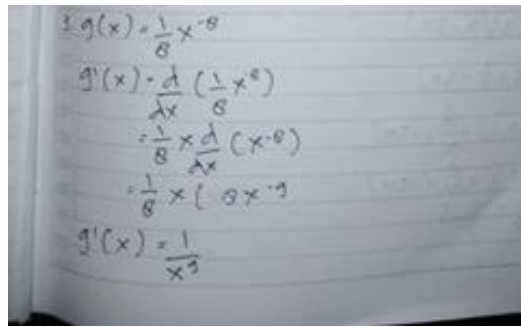 3. g(x) = 1/8 x^-8
g'(x) = d/dx (1/8 x^8)
= 1/8 × d/dx (x^-8)
= 1/8 × ( 8x^-9
g'(x) = 1/x^9